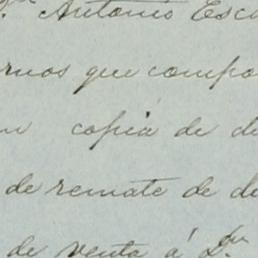 Antonio Esc
rnos que compo
n copia de d
de remate de de
de venta á Dn